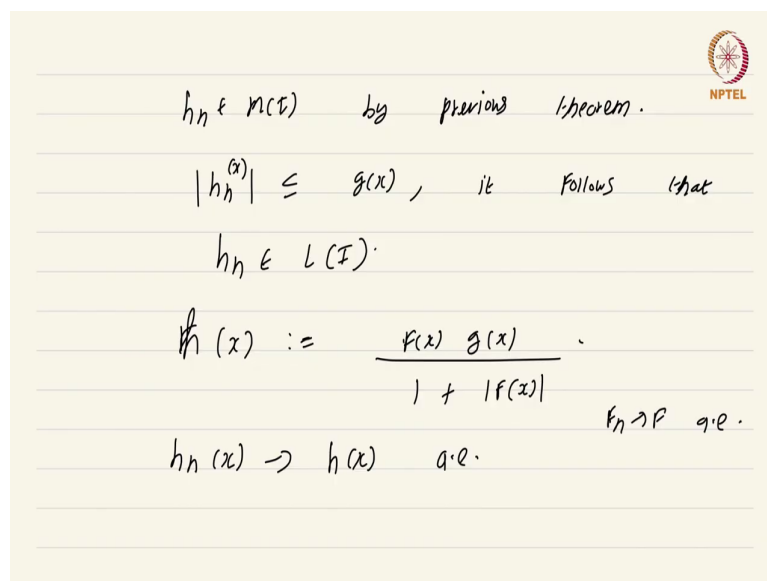 NPTEL
hn ∈ M(I) by previous theorem.
|hn(x)| ≤ g(x), it follows that
hn ∈ L(I).
h(x) := F(x) g(x)
1 + |F(x)|
Fn → F a.e.
hn(x) → h(x) a.e.